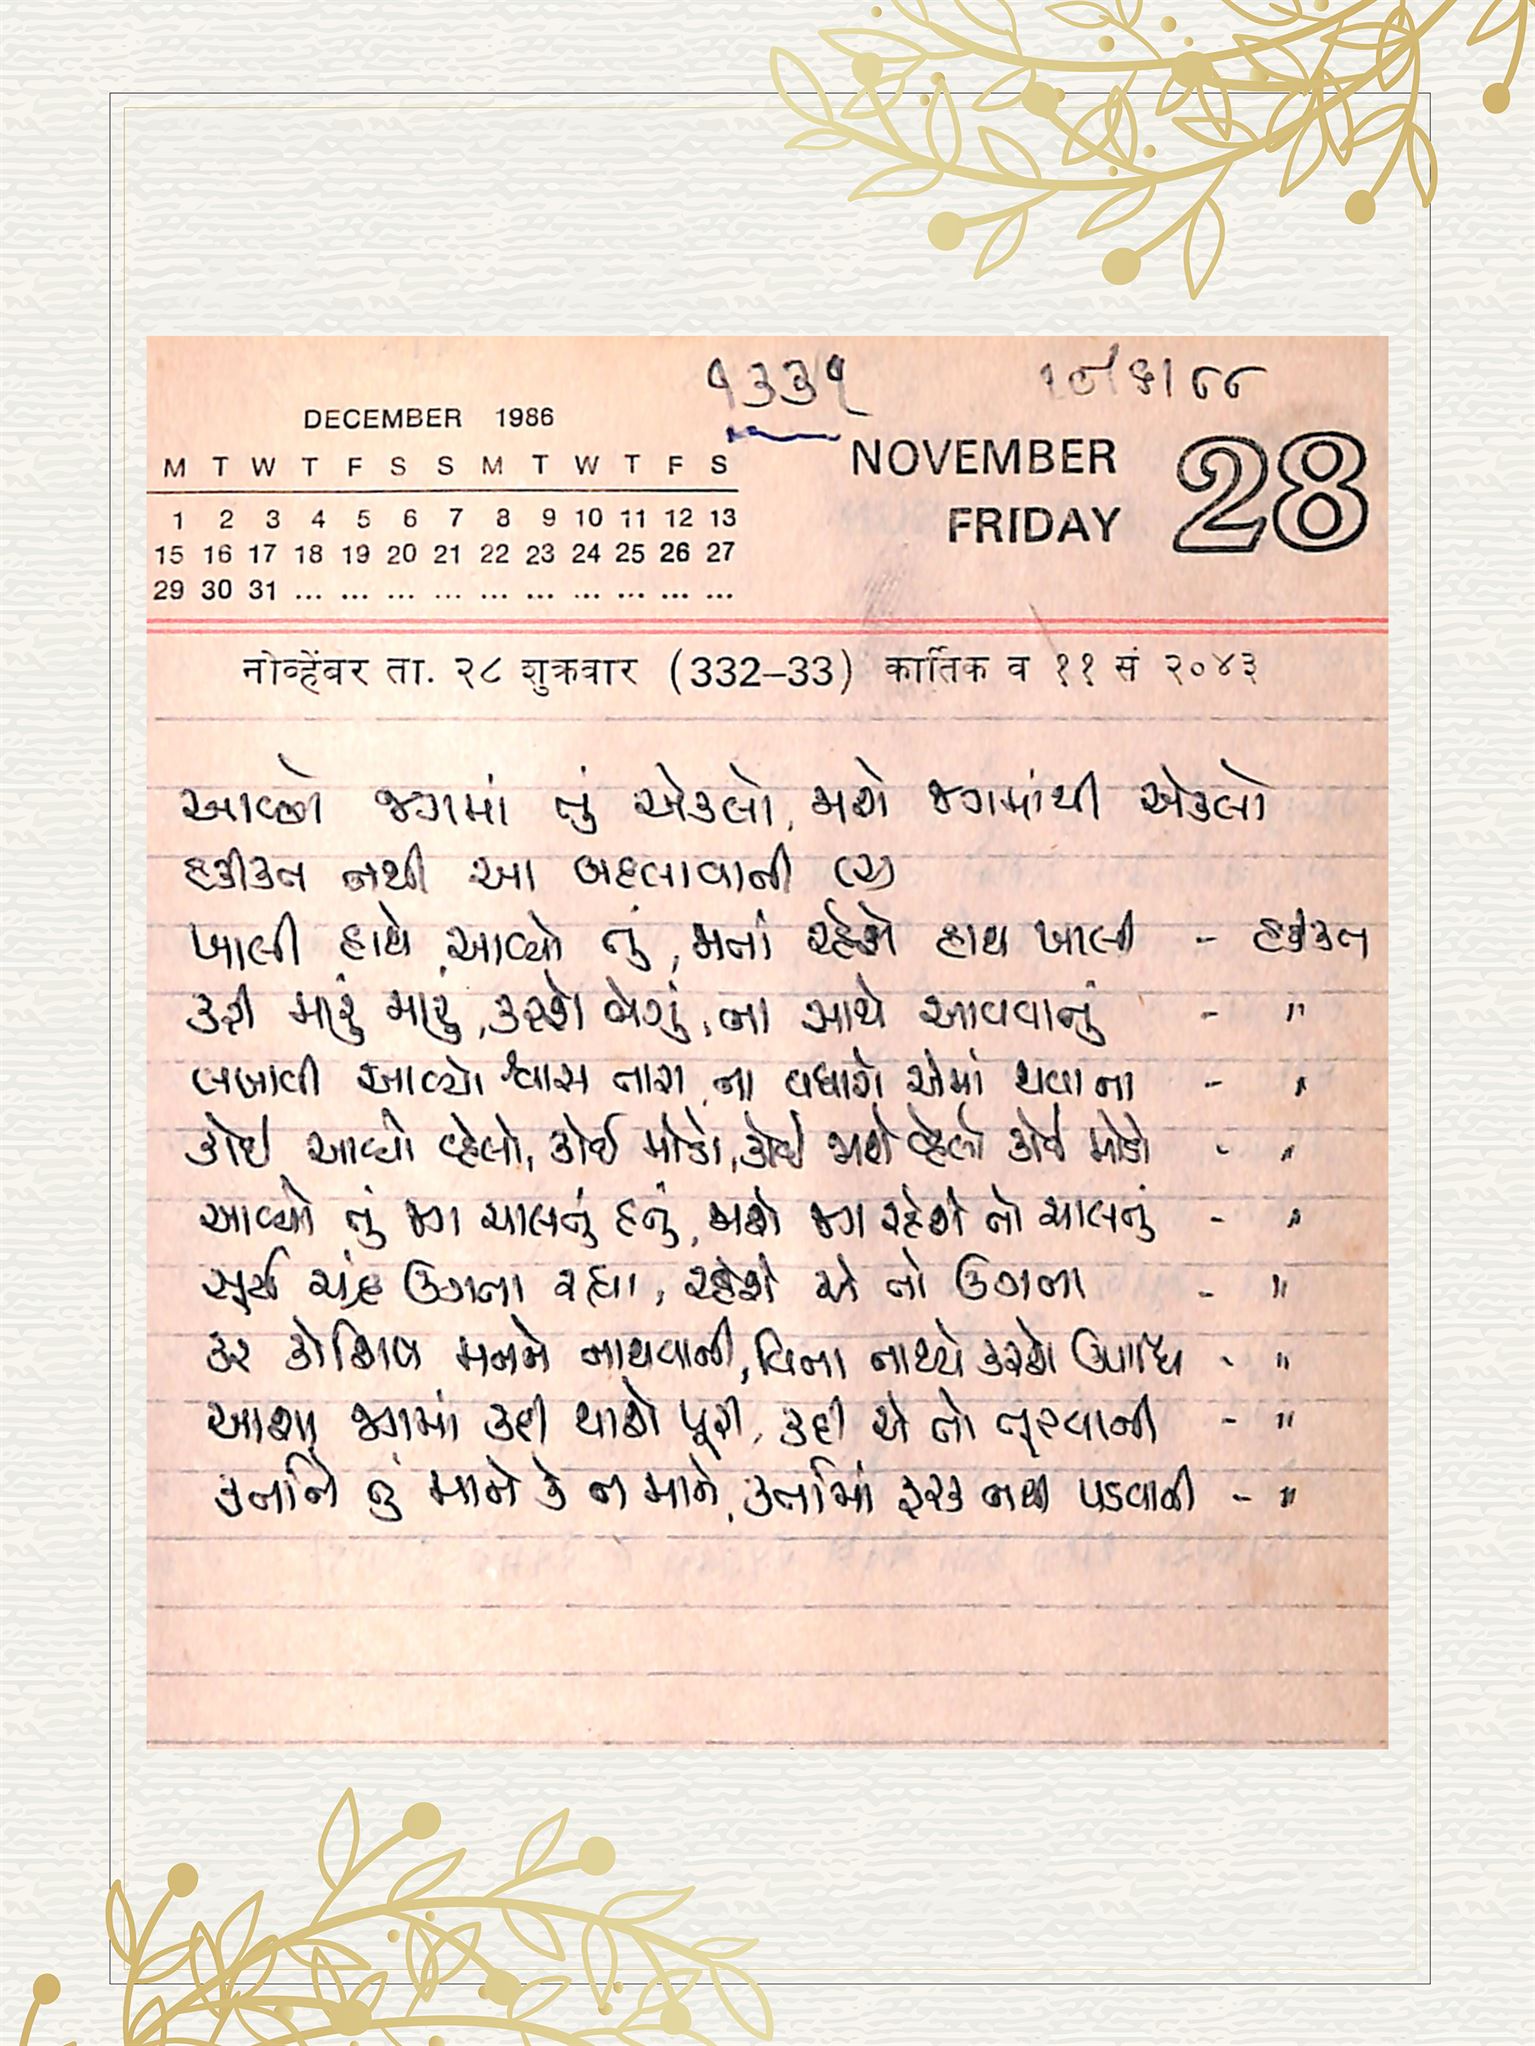 ૧૩૩૧
DECEMBER 1986
M T W T F S S M T W T F S
1 2 3 4 5 6 7 8 9 10 11 12 13
15 16 17 18 19 20 21 22 23 24 25 26 27
29 30 31 ... ... ... ... ... ... ... ... ... ...
NOVEMBER
FRIDAY
28
नोव्हेंबर ता. २८ शुक्रवार (332–33) कार्तिक व ११ सं २०४३
આવ્યો જગમાં તું એકલો, જાશે જગમાંથી એકલો
હકીકત નથી આ બદલાવાની (૨)
ખાલી હાથે આવ્યો તું, જાતાં રહેશે હાથ ખાલી - હકીકત
કરી મારું મારું, કરશે ભેગું, ના સાથે આવવાનું - "
લખાવી આવ્યો શ્વાસ તારા, ના વધારો એમાં થવાના - "
કોઈ આવ્યો વ્હેલો, કોઈ મોડો, કોઈ જાશે વ્હેલો કોઈ મોડો - "
આવ્યો તું જગ ચાલતું હતું, જાશે જગ રહેશે તો ચાલતું - "
સૂર્ય ચંદ્ર ઉગતા રહ્યા, રહેશે એ તો ઉગતા - "
કર કોશિશ મનને નાથવાની, વિના નાથ્યે કરશે ઉપાધિ - "
આશા જગમાં કદી થાશે પૂરી, કદી એ તો તૂટવાની - "
કર્તાને તું માને કે ન માને, કર્તામાં ફરક નથી પડવાની - "